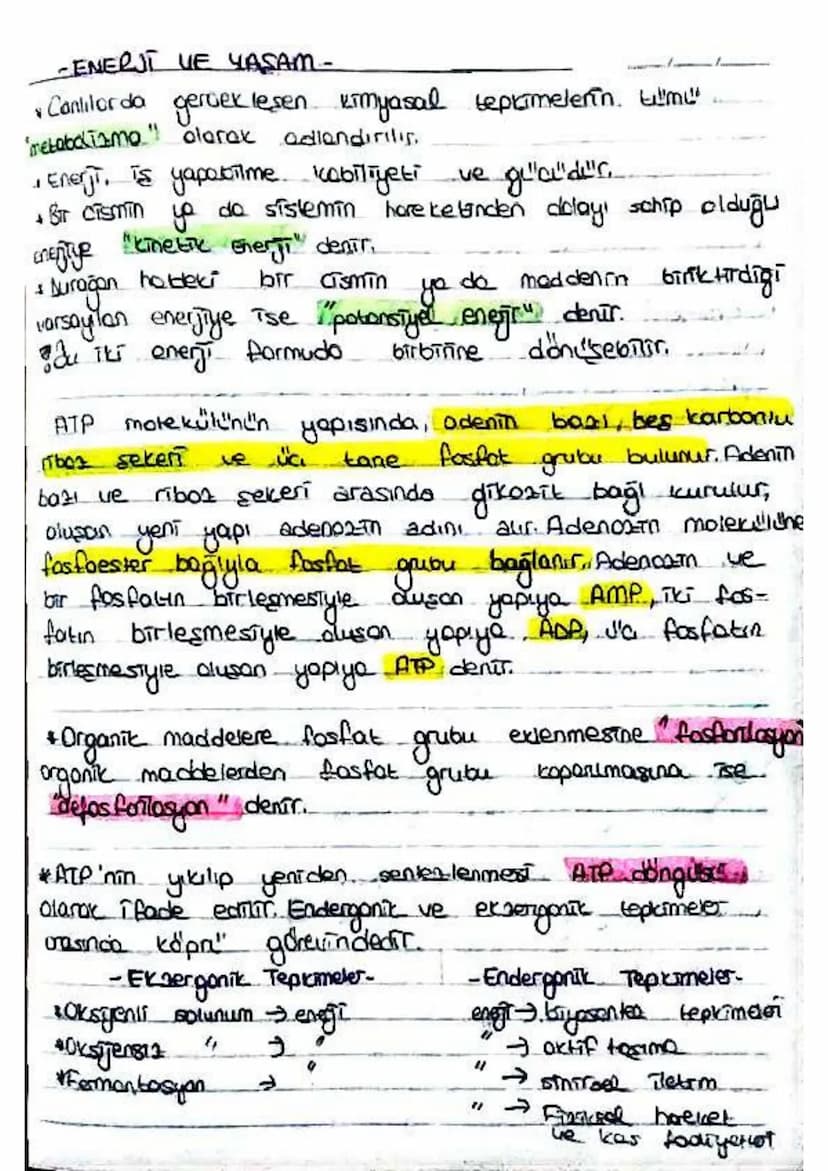 -ENERJİ VE YAŞAM-
* Canlılarda gerçekleşen kimyasal tepkimelerin tümü
"metabolizma" olarak adlandırılır.
* Enerji, iş yapabilme kabiliyeti ve gücüdür.
* Bir cismin ya da sistemin hareketinden dolayı sahip olduğu
enerjiye "kinetik enerji" denir.
* Durağan haldeki bir cismin ya da maddenin biriktirdiği
varsayılan enerjiye ise "potansiyel enerji" denir.
Bu iki enerji formuda birbirine dönüşebilir.
ATP molekülünün yapısında, adenin bazı, beş karbonlu
riboz şekeri ve üç tane fosfat grubu bulunur. Adenin
bazı ve riboz şekeri arasında glikozit bağı kurulur,
oluşan yeni yapı adenozin adını alır. Adenozin molekülüne
fosfoester bağıyla fosfat grubu bağlanır. Adenozin ve
bir fosfatın birleşmesiyle oluşan yapıya AMP, iki fos-
fatın birleşmesiyle oluşan yapıya ADP, üç fosfatın
birleşmesiyle oluşan yapıya ATP denir.
*Organik maddelere fosfat grubu eklenmesine "fosforilasyon
organik maddelerden fosfat grubu koparılmasına ise
"defosforilasyon" denir.
*ATP'nin yıkılıp yeniden sentezlenmesi ATP döngüsü
olarak ifade edilir. Endergonik ve ekzergonik tepkimeler
arasında köprü görevindedir.
-Ekzergonik Tepkimeler-
*Oksijenli solunum → enerji
*Oksijensiz " → "
*Fermantasyon → "
-Endergonik Tepkimeler-
enerji → biyosentez tepkimeleri
" → aktif taşıma
" → sinirsel iletim
" → Fiziksel hareket
ve kas faaliyetleri